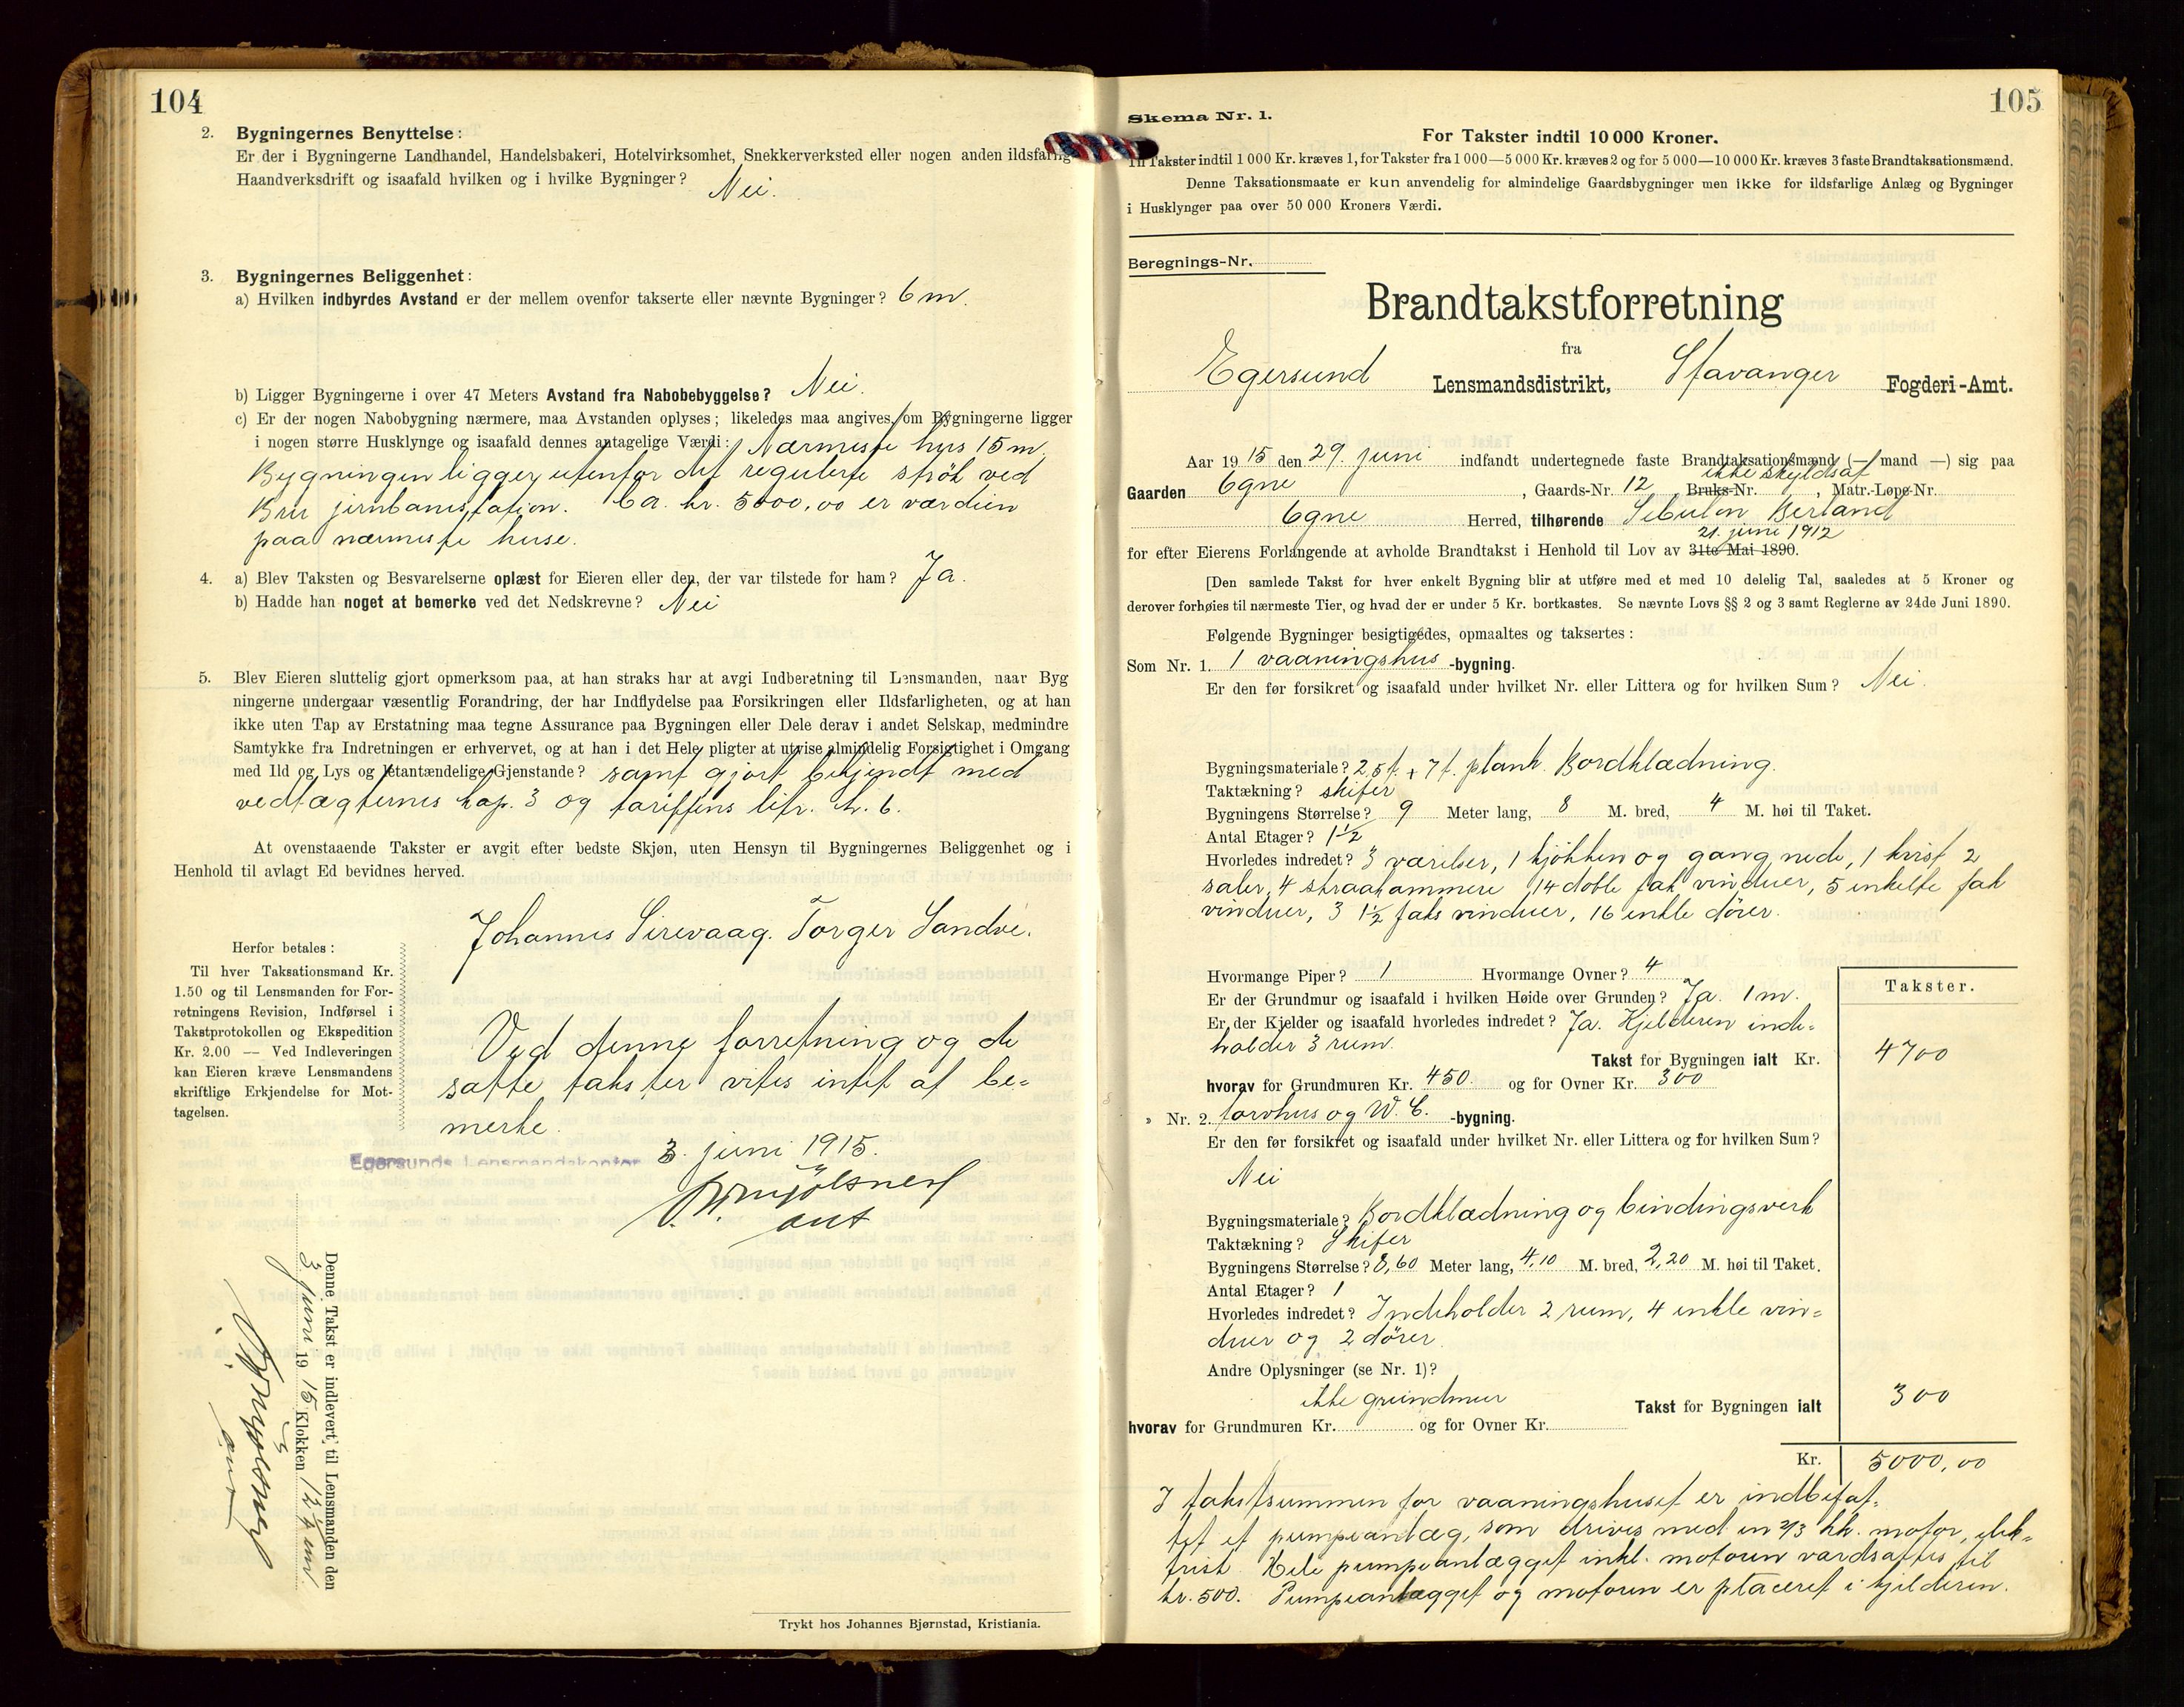 104
2. Bygningernes Benyttelse:
Er der i Bygningerne Landhandel, Handelsbakeri, Hotelvirksomhet, Snekkerverksted eller nogen anden ildsfarlig
Haandverksdrift og isaafald hvilken og i hvilke Bygninger? Nei.
3. Bygningernes Beliggenhet:
a) Hvilken indbyrdes Avstand er der mellem ovenfor takserte eller nævnte Bygninger? 6 m.
b) Ligger Bygningerne i over 47 Meters Avstand fra Nabobebyggelse? Nei.
c) Er der nogen Nabobygning nærmere, maa Avstanden oplyses; likeledes maa angives, om Bygningerne ligger
i nogen større Husklynge og isaafald dennes antagelige Værdi: Nærmeste hus 15 m.
Bygningen ligger utenfor det regulerte strøk ved
Brus jernbanestation. Ca. kr. 5000,00 er værdien
paa nærmeste huse.
4. a) Blev Taksten og Besvarelserne oplæst for Eieren eller den, der var tilstede for ham? Ja.
b) Hadde han noget at bemerke ved det Nedskrevne? Nei
5. Blev Eieren sluttelig gjort opmerksom paa, at han straks har at avgi Indberetning til Lensmanden, naar Byg
ningerne undergaar væsentlig Forandring, der har Indflydelse paa Forsikringen eller Ildsfarligheten, og at han
ikke uten Tap av Erstatning maa tegne Assurance paa Bygningen eller Dele derav i andet Selskap, medmindre
Samtykke fra Indretningen er erhvervet, og at han i det Hele pligter at utvise almindelig Forsigtighet i Omgang
med Ild og Lys og letantændelige Gjenstande? samt gjort bekjendt med
vedtægternes kap. 3 og tariffens litr. h. 6.
At ovenstaaende Takster er avgit efter bedste Skjøn, uten Hensyn til Bygningernes Beliggenhet og i
Henhold til avlagt Ed bevidnes herved.
Johannes Sirevaag. Torger Sandve.
Herfor betales:
Til hver Taksationsmand Kr.
1.50 og til Lensmanden for For-
retningens Revision, Indførsel i
Takstprotokollen og Ekspedition
Kr. 2.00 — Ved Indleveringen
kan Eieren kræve Lensmandens
skriftlige Erkjendelse for Mot-
tagelsen.
Ved denne forretning og de
satte takster vites intet at be-
merke.
Egersunds Lensmandskontor 3. juni 1915.
aut
Denne Takst er indlevert til Lensmanden den
3 juni 1915 Klokken 12 1/2 em.
aut
Trykt hos Johannes Bjørnstad, Kristiania.
105
Skema Nr. 1.
For Takster indtil 10 000 Kroner.
Til Takster indtil 1 000 Kr. kræves 1, for Takster fra 1 000—5 000 Kr. kræves 2 og for 5 000—10 000 Kr. kræves 3 faste Brandtaksationsmænd.
Denne Taksationsmaate er kun anvendelig for almindelige Gaardsbygninger men ikke for ildsfarlige Anlæg og Bygninger
i Husklynger paa over 50 000 Kroners Værdi.
Beregnings-Nr.
Brandtakstforretning
fra
Egersund Lensmandsdistrikt, Stavanger Fogderi-Amt.
Aar 1915 den 29. juni indfandt undertegnede faste Brandtaksationsmænd (— mand —) sig paa
ikke skyldsat
Gaarden Egne, Gaards-Nr. 12 Bruks-Nr., Matr.-Løpe-Nr.
Egne Herred, tilhørende Sebulon Berland
21. juni 1912
for efter Eierens Forlangende at avholde Brandtakst i Henhold til Lov av 31te Mai 1890.
[Den samlede Takst for hver enkelt Bygning blir at utføre med et med 10 delelig Tal, saaledes at 5 Kroner og
derover forhøies til nærmeste Tier, og hvad der er under 5 Kr. bortkastes. Se nævnte Lovs §§ 2 og 3 samt Reglerne av 24de Juni 1890.
Følgende Bygninger besigtigedes, opmaaltes og taksertes:
Som Nr. 1. 1 vaaningshus -bygning.
Er den før forsikret og isaafald under hvilket Nr. eller Littera og for hvilken Sum? Nei.
Bygningsmateriale? 2,5 t. + 7 t. plank. Bordklædning.
Taktækning? skifer
Bygningens Størrelse? 9 Meter lang, 8 M. bred, 4 M. høi til Taket.
Antal Etager? 1 1/2
Hvorledes indredet? 3 værelser, 1 kjøkken og gang nede, 1 kvist 2
saler, 4 skraakammere, 14 doble fak vinduer, 5 enkelte fak
vinduer, 3 1 1/2 faks vinduer, 16 enkle dører.
Hvormange Piper? 1 Hvormange Ovner? 4
Er der Grundmur og isaafald i hvilken Høide over Grunden? Ja. 1 m.
Takster.
Er der Kjelder og isaafald hvorledes indredet? Ja. Kjelderen inde-
holder 3 rum.
Takst for Bygningen ialt Kr. 4700
hvorav for Grundmuren Kr. 450. og for Ovner Kr. 300
» Nr. 2. torvhus og W. C. -bygning.
Er den før forsikret og isaafald under hvilket Nr. eller Littera og for hvilken Sum?
Nei
Bygningsmateriale? Bordklædning og bindingsverk
Taktækning? Skifer
Bygningens Størrelse? 8,60 Meter lang, 4,10 M. bred, 2,20 M. høi til Taket.
Antal Etager? 1
Hvorledes indredet? Indeholder 2 rum, 4 enkle vin-
duer og 2 dører.
Andre Oplysninger (se Nr. 1)?
ikke grundmur
Takst for Bygningen ialt 300
hvorav for Grundmuren Kr. og for Ovner Kr.
Kr. 5000,00
I takstsummen for vaaningshuset er indbefat-
tet et pumpeanlæg, som drives med en 2/3 hk. motor, elek-
trisk. Hele pumpeanlægget inkl. motoren værdsattes til
kr. 500. Pumpeanlægget og motoren er placeret i kjelderen.